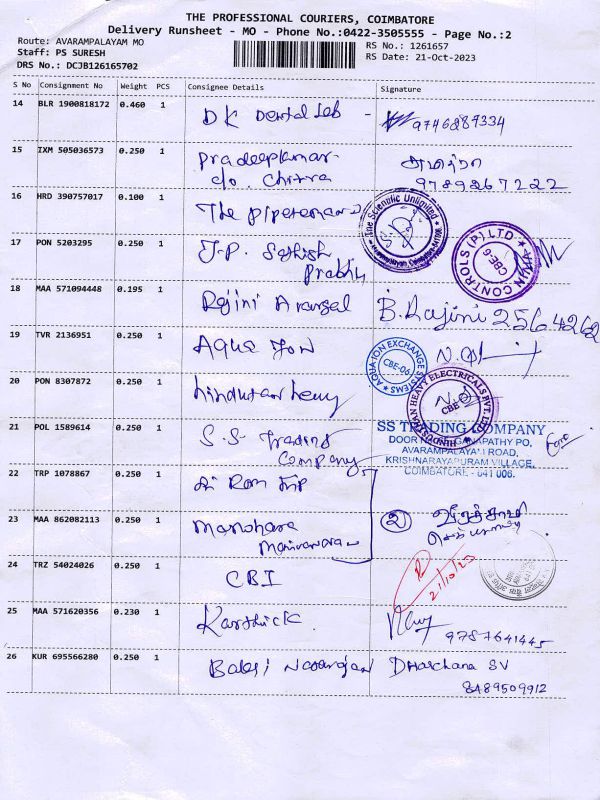 THE PROFESSIONAL COURIERS, COIMBATORE
Delivery Runsheet - MO - Phone No.:0422-3505555 - Page No.:2
Route: AVARAMPALAYAM MO
Staff: PS SURESH
DRS No.: DCJB126165702
RS No.: 1261657
RS Date: 21-Oct-2023
S No Consignment No Weight PCS Consignee Details Signature
14 BLR 1900818172 0.460 1 DK Dental Lab - 9746289334
15 IXM 505036573 0.250 1 Pradeepkumar
c/o. Chitra
9789267222
16 HRD 390757017 0.100 1 The
The Scientific Unlimited
17 PON 5203295 0.250 1 J.P. Sathish
Prabhu
CONTROLS (P) LTD
CBE-6
18 MAA 571094448 0.195 1 Rajini B. Rajini 2564262
19 TVR 2136951 0.250 1 Aqua Ion
AQUA ION EXCHANGE SYSTEMS
CBE-06
20 PON 8307872 0.250 1 hindustan heavy
HINDUSTAN HEAVY ELECTRICALS PVT. LTD
CBE
21 POL 1589614 0.250 1 S.S. Trading
Company
SS TRADING COMPANY
DOOR NO GANAPATHY PO,
AVARAMPALAYAM ROAD,
KRISHNARAYAPURAM VILLAGE,
COIMBATORE - 641 006.
22 TRP 1078867 0.250 1 Sri Ram
23 MAA 862082113 0.250 1 Manohara
24 TRZ 54024026 0.250 1 CBI
21/10/23
25 MAA 571620356 0.230 1 Karthick 9787641445
26 KUR 695566280 0.250 1 Balaji Dharshana SV
8489509912